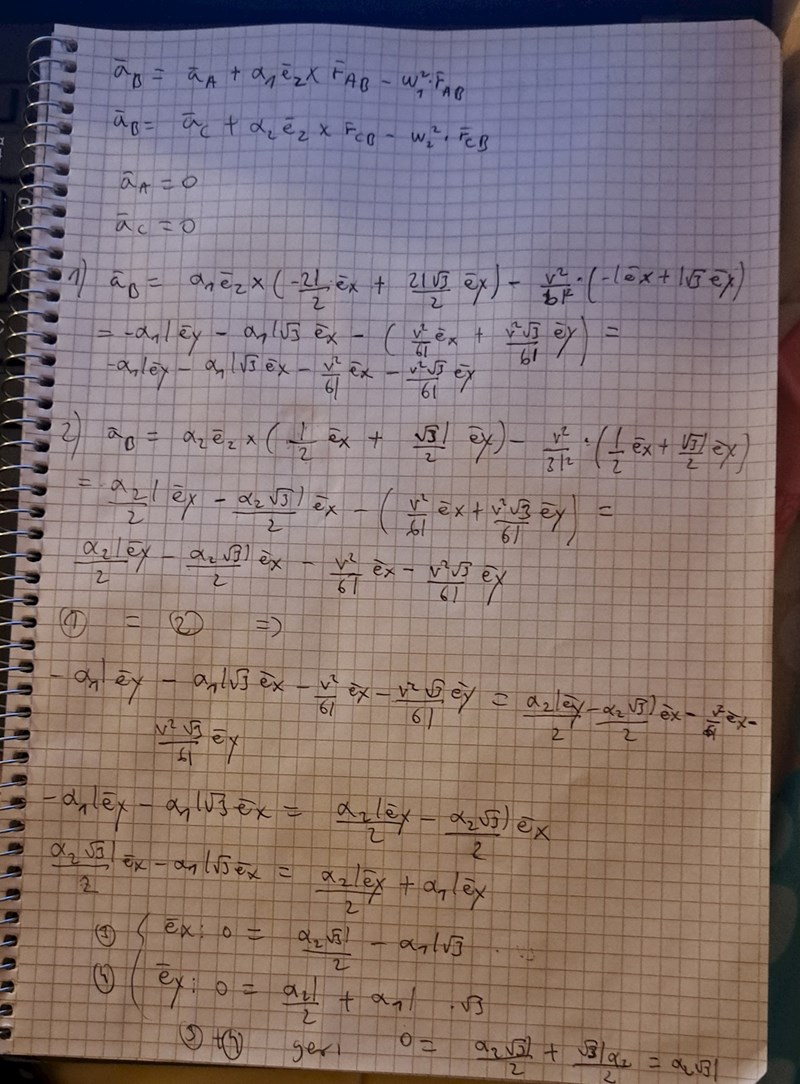 ā_B = ā_A + α₁ē_z × r̄_AB − ω₁²·r̄_AB
ā_B = ā_C + α₂ē_z × r̄_CB − ω₂²·r̄_CB
ā_A = 0
ā_C = 0
1) ā_B = α₁ē_z × (−2l/2 ēx + 2l√3/2 ēy) − v²/6l²·(−lēx + l√3 ēy)
= −α₁lēy − α₁l√3 ēx − (v²/6l ēx + v²√3/6l ēy) =
−α₁lēy − α₁l√3 ēx − v²/6l ēx − v²√3/6l ēy
2) ā_B = α₂ē_z × (l/2 ēx + √3l/2 ēy) − v²/3l²·(l/2 ēx + √3l/2 ēy)
= α₂l/2 ēy − α₂√3l/2 ēx − (v²/6l ēx + v²√3/6l ēy) =
α₂lēy/2 − α₂√3l/2 ēx − v²/6l ēx − v²√3/6l ēy
① = ② ⇒
−α₁lēy − α₁l√3 ēx − v²/6l ēx − v²√3/6l ēy = α₂lēy/2 − α₂√3l/2 ēx − v²/6l ēx −
v²√3/6l ēy
−α₁lēy − α₁l√3 ēx = α₂lēy/2 − α₂√3l/2 ēx
α₂√3l/2 ēx − α₁l√3 ēx = α₂lēy/2 + α₁lēy
③ { ēx: 0 = α₂√3l/2 − α₁l√3
④ { ēy: 0 = α₂l/2 + α₁l ·√3
③+④ ger: 0 = α₂√3l/2 + √3lα₂/2 = α₂√3l